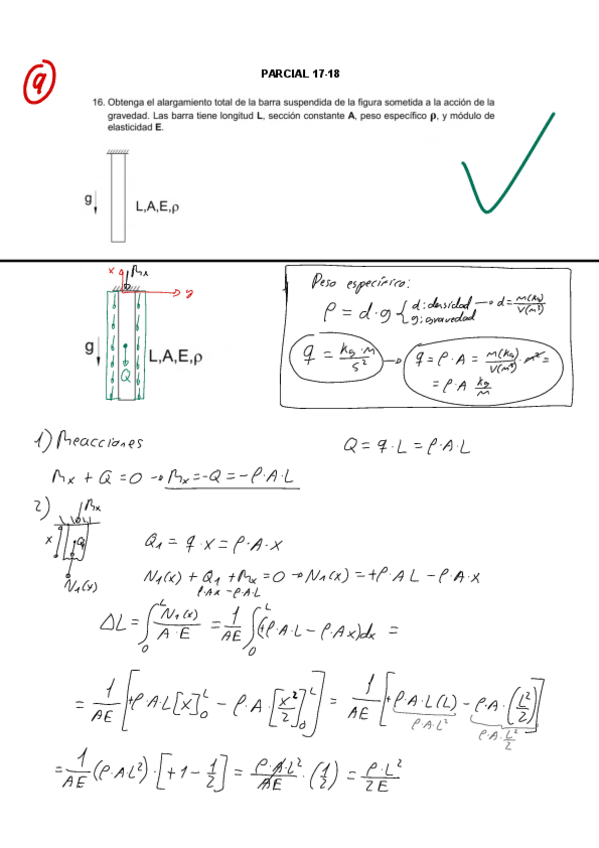 9
PARCIAL 17-18
16. Obtenga el alargamiento total de la barra suspendida de la figura sometida a la acción de la
gravedad. Las barra tiene longitud L, sección constante A, peso específico ρ, y módulo de
elasticidad E.
g
L,A,E,ρ
x Rx
y
g
Q
L,A,E,ρ
Peso específico:
ρ = d·g { d: densidad → d = m(kg)/V(m³)
g: gravedad
q = kg·m/s² → q = ρ·A = m(kg)/V(m³)·m² =
= ρ·A kg/m
1) Reacciones
Q = q·L = ρ·A·L
Rx + Q = 0 → Rx = -Q = -ρ·A·L
2)
Rx
x
Q1
N1(x)
Q1 = q·x = ρ·A·x
N1(x) + Q1 + Rx = 0 → N1(x) = +ρ·AL - ρ·A·x
ρ·Ax - ρ·A·L
ΔL = ∫₀ᴸ N1(x)/A·E = 1/AE ∫₀ᴸ (+ρ·A·L - ρ·Ax)dx =
= 1/AE [+ρ·A·L[x]₀ᴸ - ρ·A·[x²/2]₀ᴸ] = 1/AE [+ρ·A·L(L) - ρ·A·(L²/2)]
ρ·A·L² ρ·A·L²/2
= 1/AE (ρ·A·L²)·[+1 - 1/2] = ρ·A·L²/AE·(1/2) = ρ·L²/2E